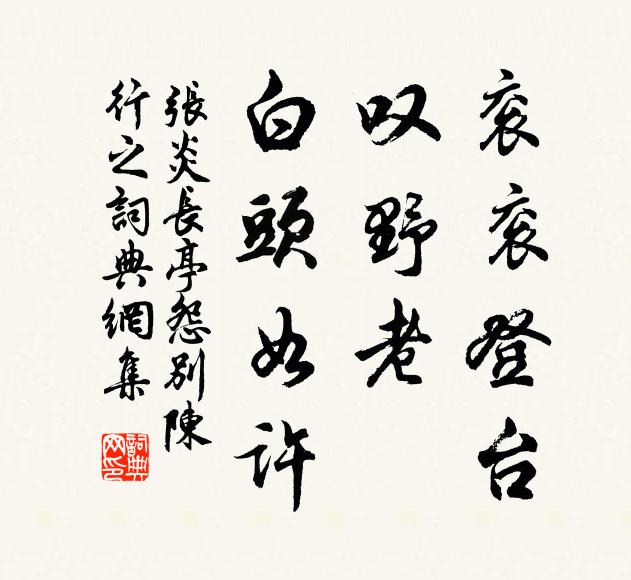 衮衮登台
叹野老
白頭如許
張炎長亭怨别陳
行之詞典網集
詞典网印